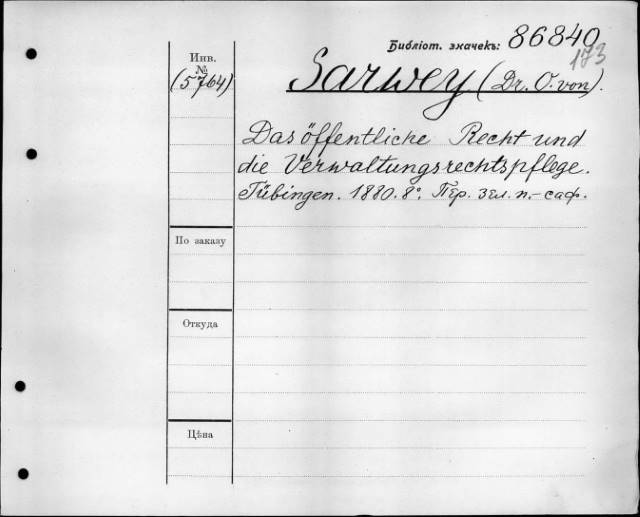 Библіот. значекъ: 86840
173
Инв.
№
(5764)
Sarwey (Dr. O. von).
Das öffentliche Recht und
die Verwaltungsrechtspflege.
Tübingen. 1880. 8°. Пер. зел. п.-саф.
По заказу
Откуда
Цѣна